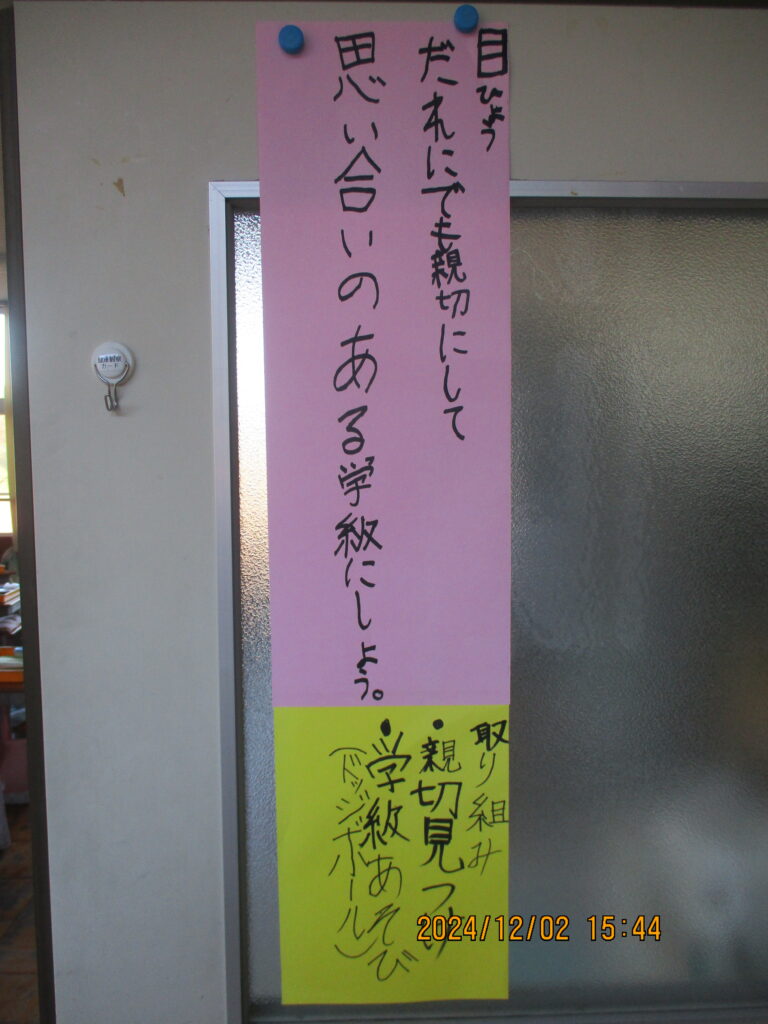 目ひょう
だれにでも親切にして
思い合いのある学級にしょう。
取り組み
・親切見つけ
・学級あそび
(ドッジボール)
カード
2024/12/02 15:44